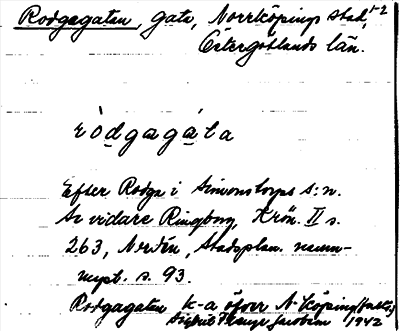 Rodgagatan, gata, Norrköpings stad, 1-2
Östergötlands län.
ròdgagáta
Efter Rodga i Simonstorps s:n.
Se vidare Ringborg, Krön. II s.
263, Nerdén, Stadsplan. namn-
mypt. s. 93.
Rodgagatan k-a öfver N-köping
Jacobson 1942